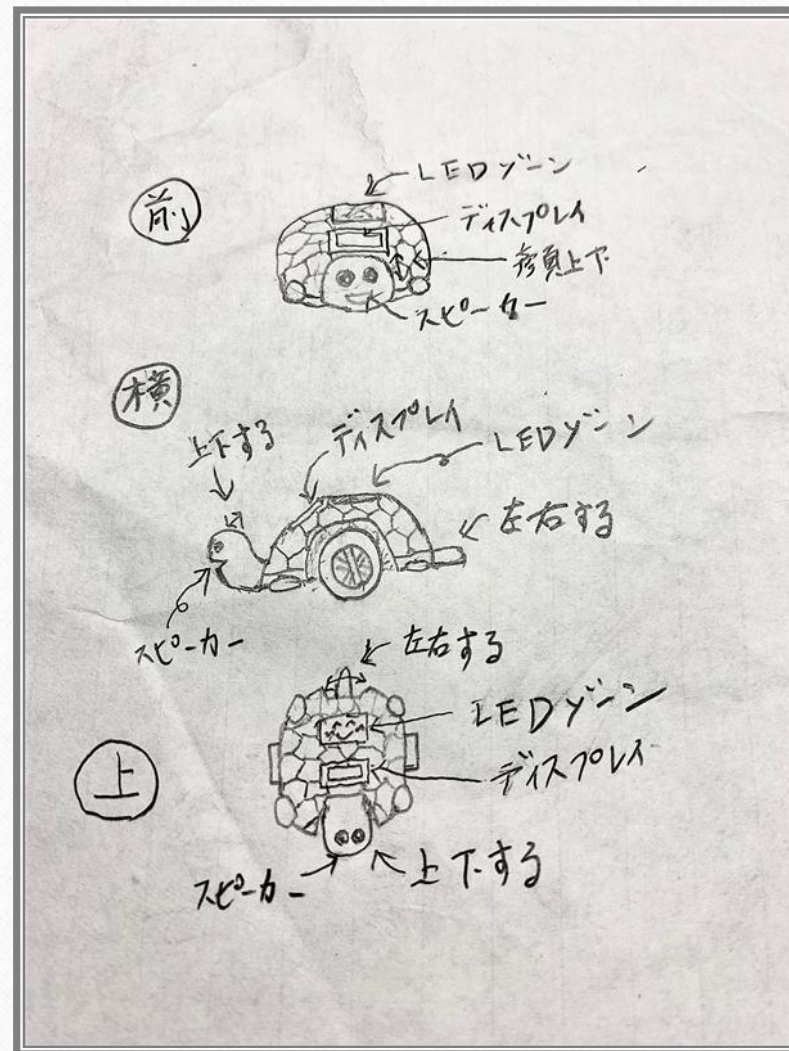 前
LEDゾーン
ディスプレイ
上下
スピーカー
横
上下する
ディスプレイ
LEDゾーン
左右する
スピーカー
左右する
LEDゾーン
ディスプレイ
上
スピーカー
上下する